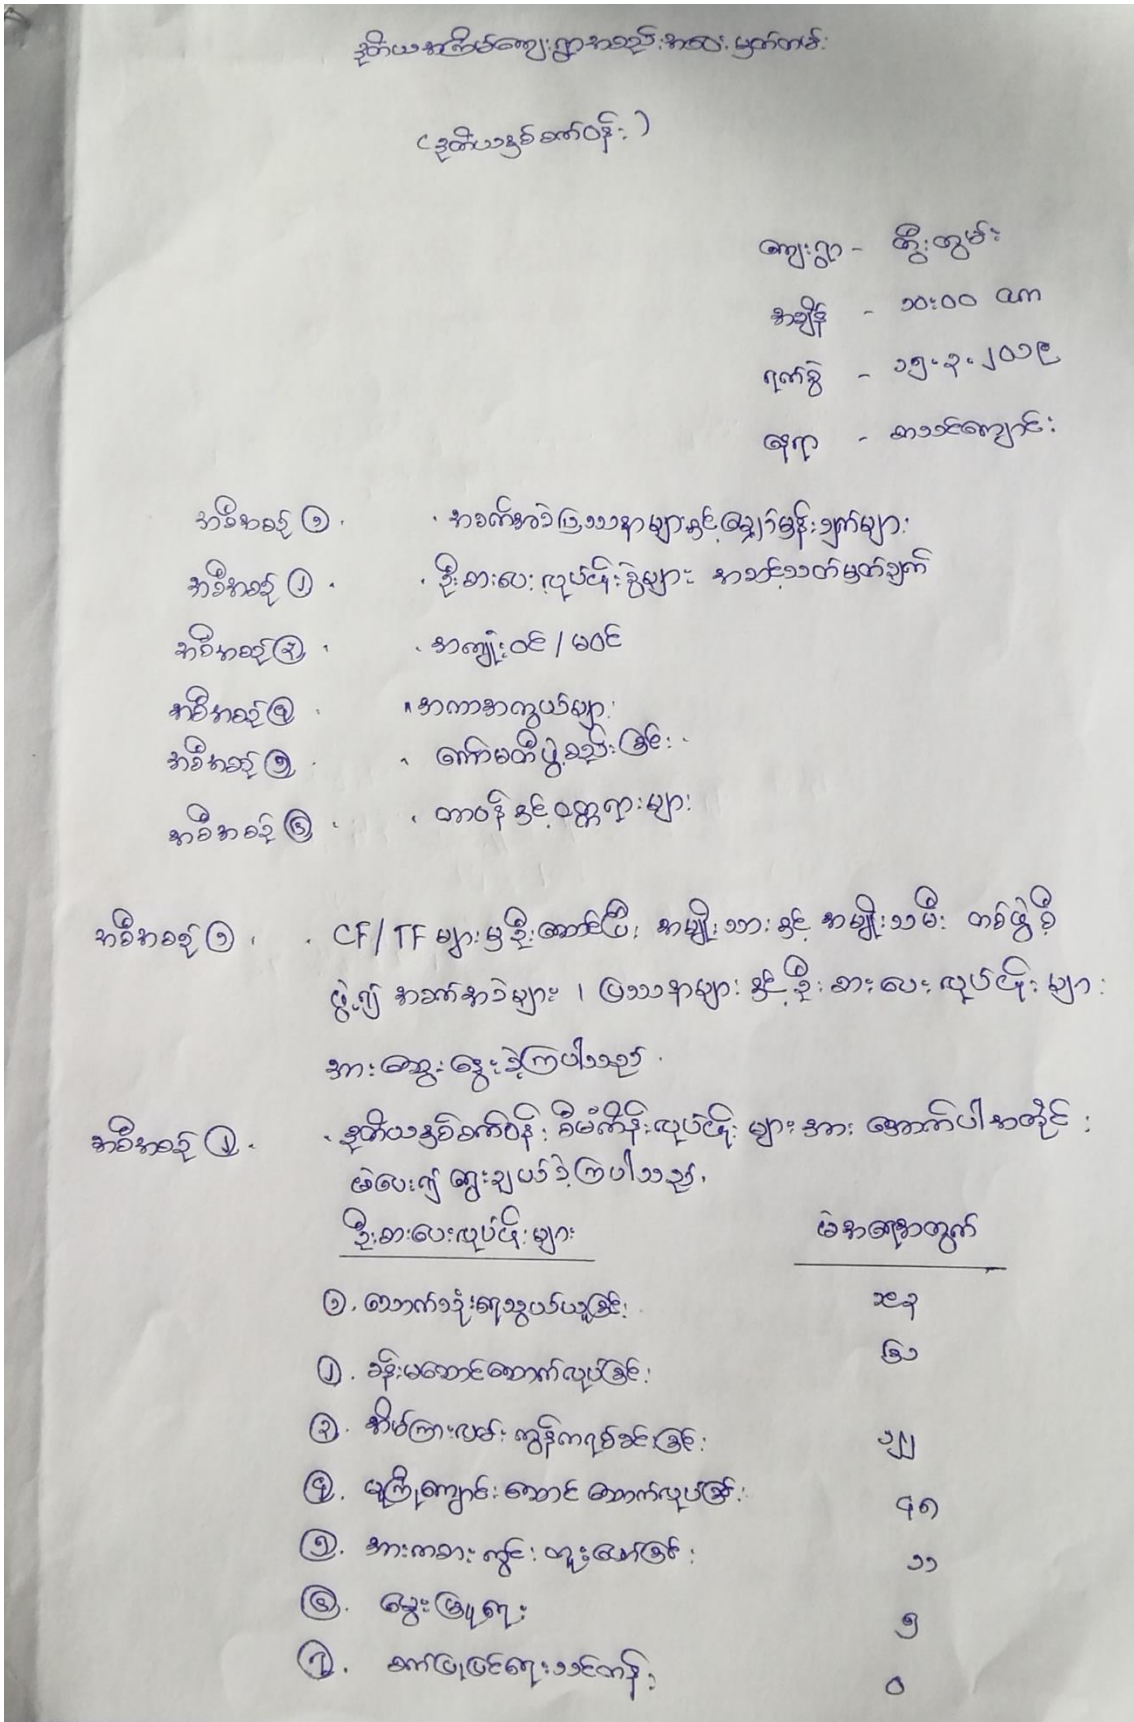 ဒုတိယအကြိမ်ကျေးရွာအစည်းအဝေးမှတ်တမ်း
(ဒုတိယနှစ်စက်ဝန်း)
ကျေးရွာ - တွီးတွမ်း
အချိန် - ၁၀:၀၀ am
ရက်စွဲ - ၁၅.၃.၂၀၁၉
နေရာ - စာသင်ကျောင်း
အစီအစဉ် ၁. . အခက်အခဲပြဿနာများနှင့်မျှော်မှန်းချက်များ
အစီအစဉ် ၂. . ဦးစားပေးလုပ်ငန်းခွဲများ အဆင့်သတ်မှတ်ချက်
အစီအစဉ် ၃. . အကျုံးဝင်/မဝင်
အစီအစဉ် ၄. . အကာအကွယ်များ
အစီအစဉ် ၅. . ကော်မတီဖွဲ့စည်းခြင်း
အစီအစဉ် ၆. . တာဝန်နှင့်ဝတ္တရားများ
အစီအစဉ် ၁. . CF/TF များမှဦးဆောင်ပြီး အမျိုးသားနှင့် အမျိုးသမီး တစ်ဖွဲ့စီ
ဖွဲ့၍ အခက်အခဲများ ၊ ပြဿနာများ နှင့်ဦးစားပေးလုပ်ငန်းများ
အား ဆွေးနွေးခဲ့ကြပါသည်.
အစီအစဉ် ၂. . ဒုတိယနှစ်စက်ဝန်း စီမံကိန်းလုပ်ငန်းများအား အောက်ပါအတိုင်း
မဲပေး၍ ရွေးချယ်ခဲ့ကြပါသည်.
ဦးစားပေးလုပ်ငန်းများ မဲအရေအတွက်
၁. သောက်သုံးရေသွယ်ယူခြင်း ၁၉၃
၂. ခန်းမဆောင်ဆောက်လုပ်ခြင်း ၆၁
၃. အိမ်ကြားလမ်း ကွန်ကရစ်ခင်းခြင်း ၁၂၂
၄. မူကြိုကျောင်းဆောင် ဆောက်လုပ်ခြင်း ၄၈
၅. အားကစားကွင်း တူးဖော်ခြင်း ၁၁
၆. မွေးမြူရေး ၅
၇. စက်ပြုပြင်ရေးသင်တန်း ၀